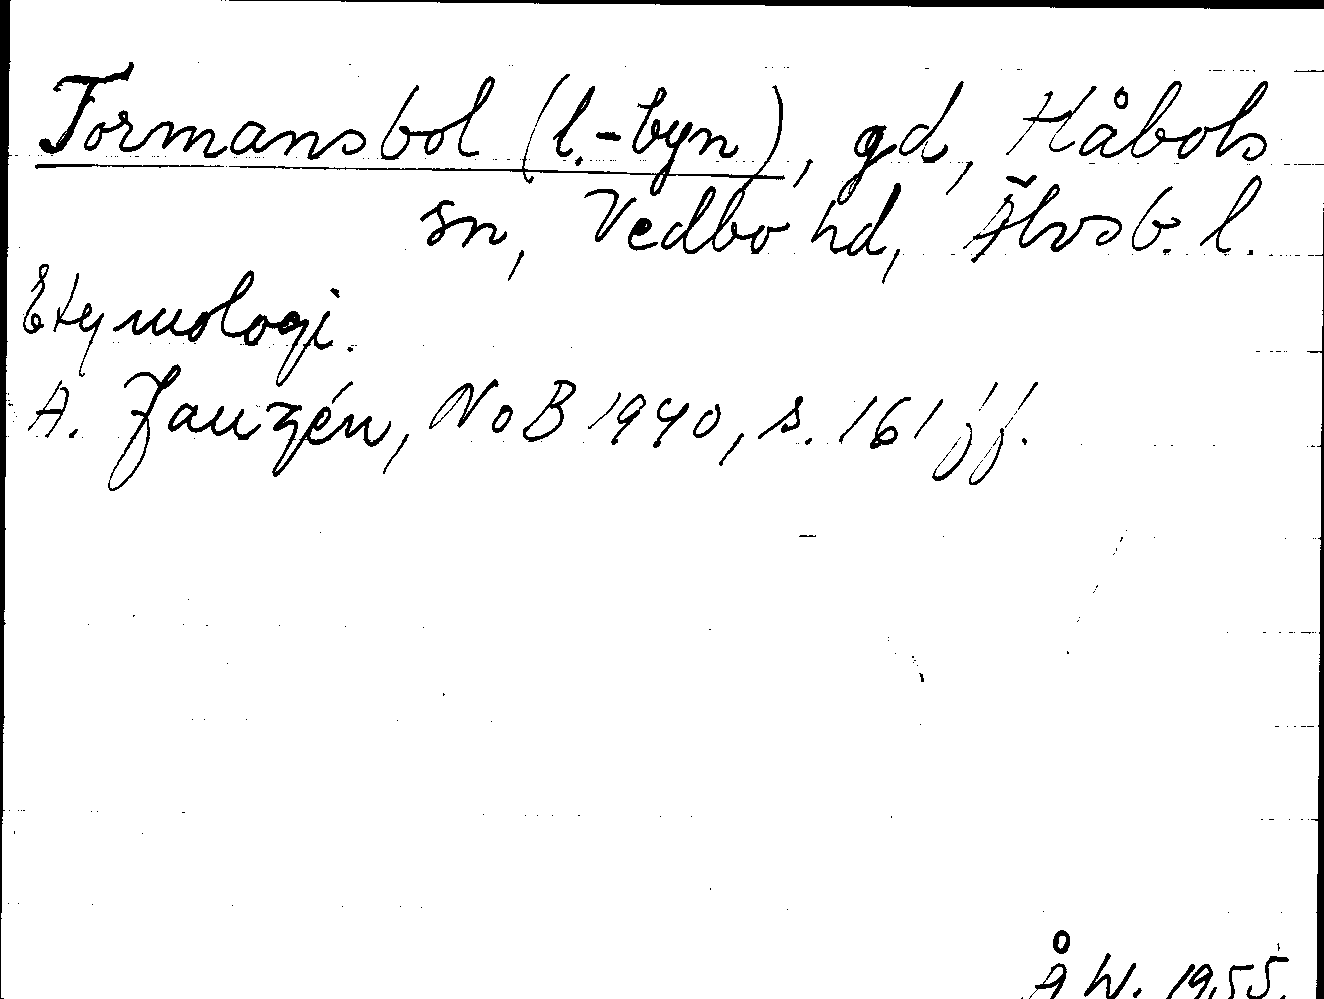 Formansbol (l.-byn), gd, Håbols
sn, Vedbo hd, Älvsb. l.
Etymologi.
A. Janzén, NoB 1940, s. 161 ff.
ÅW. 1955.